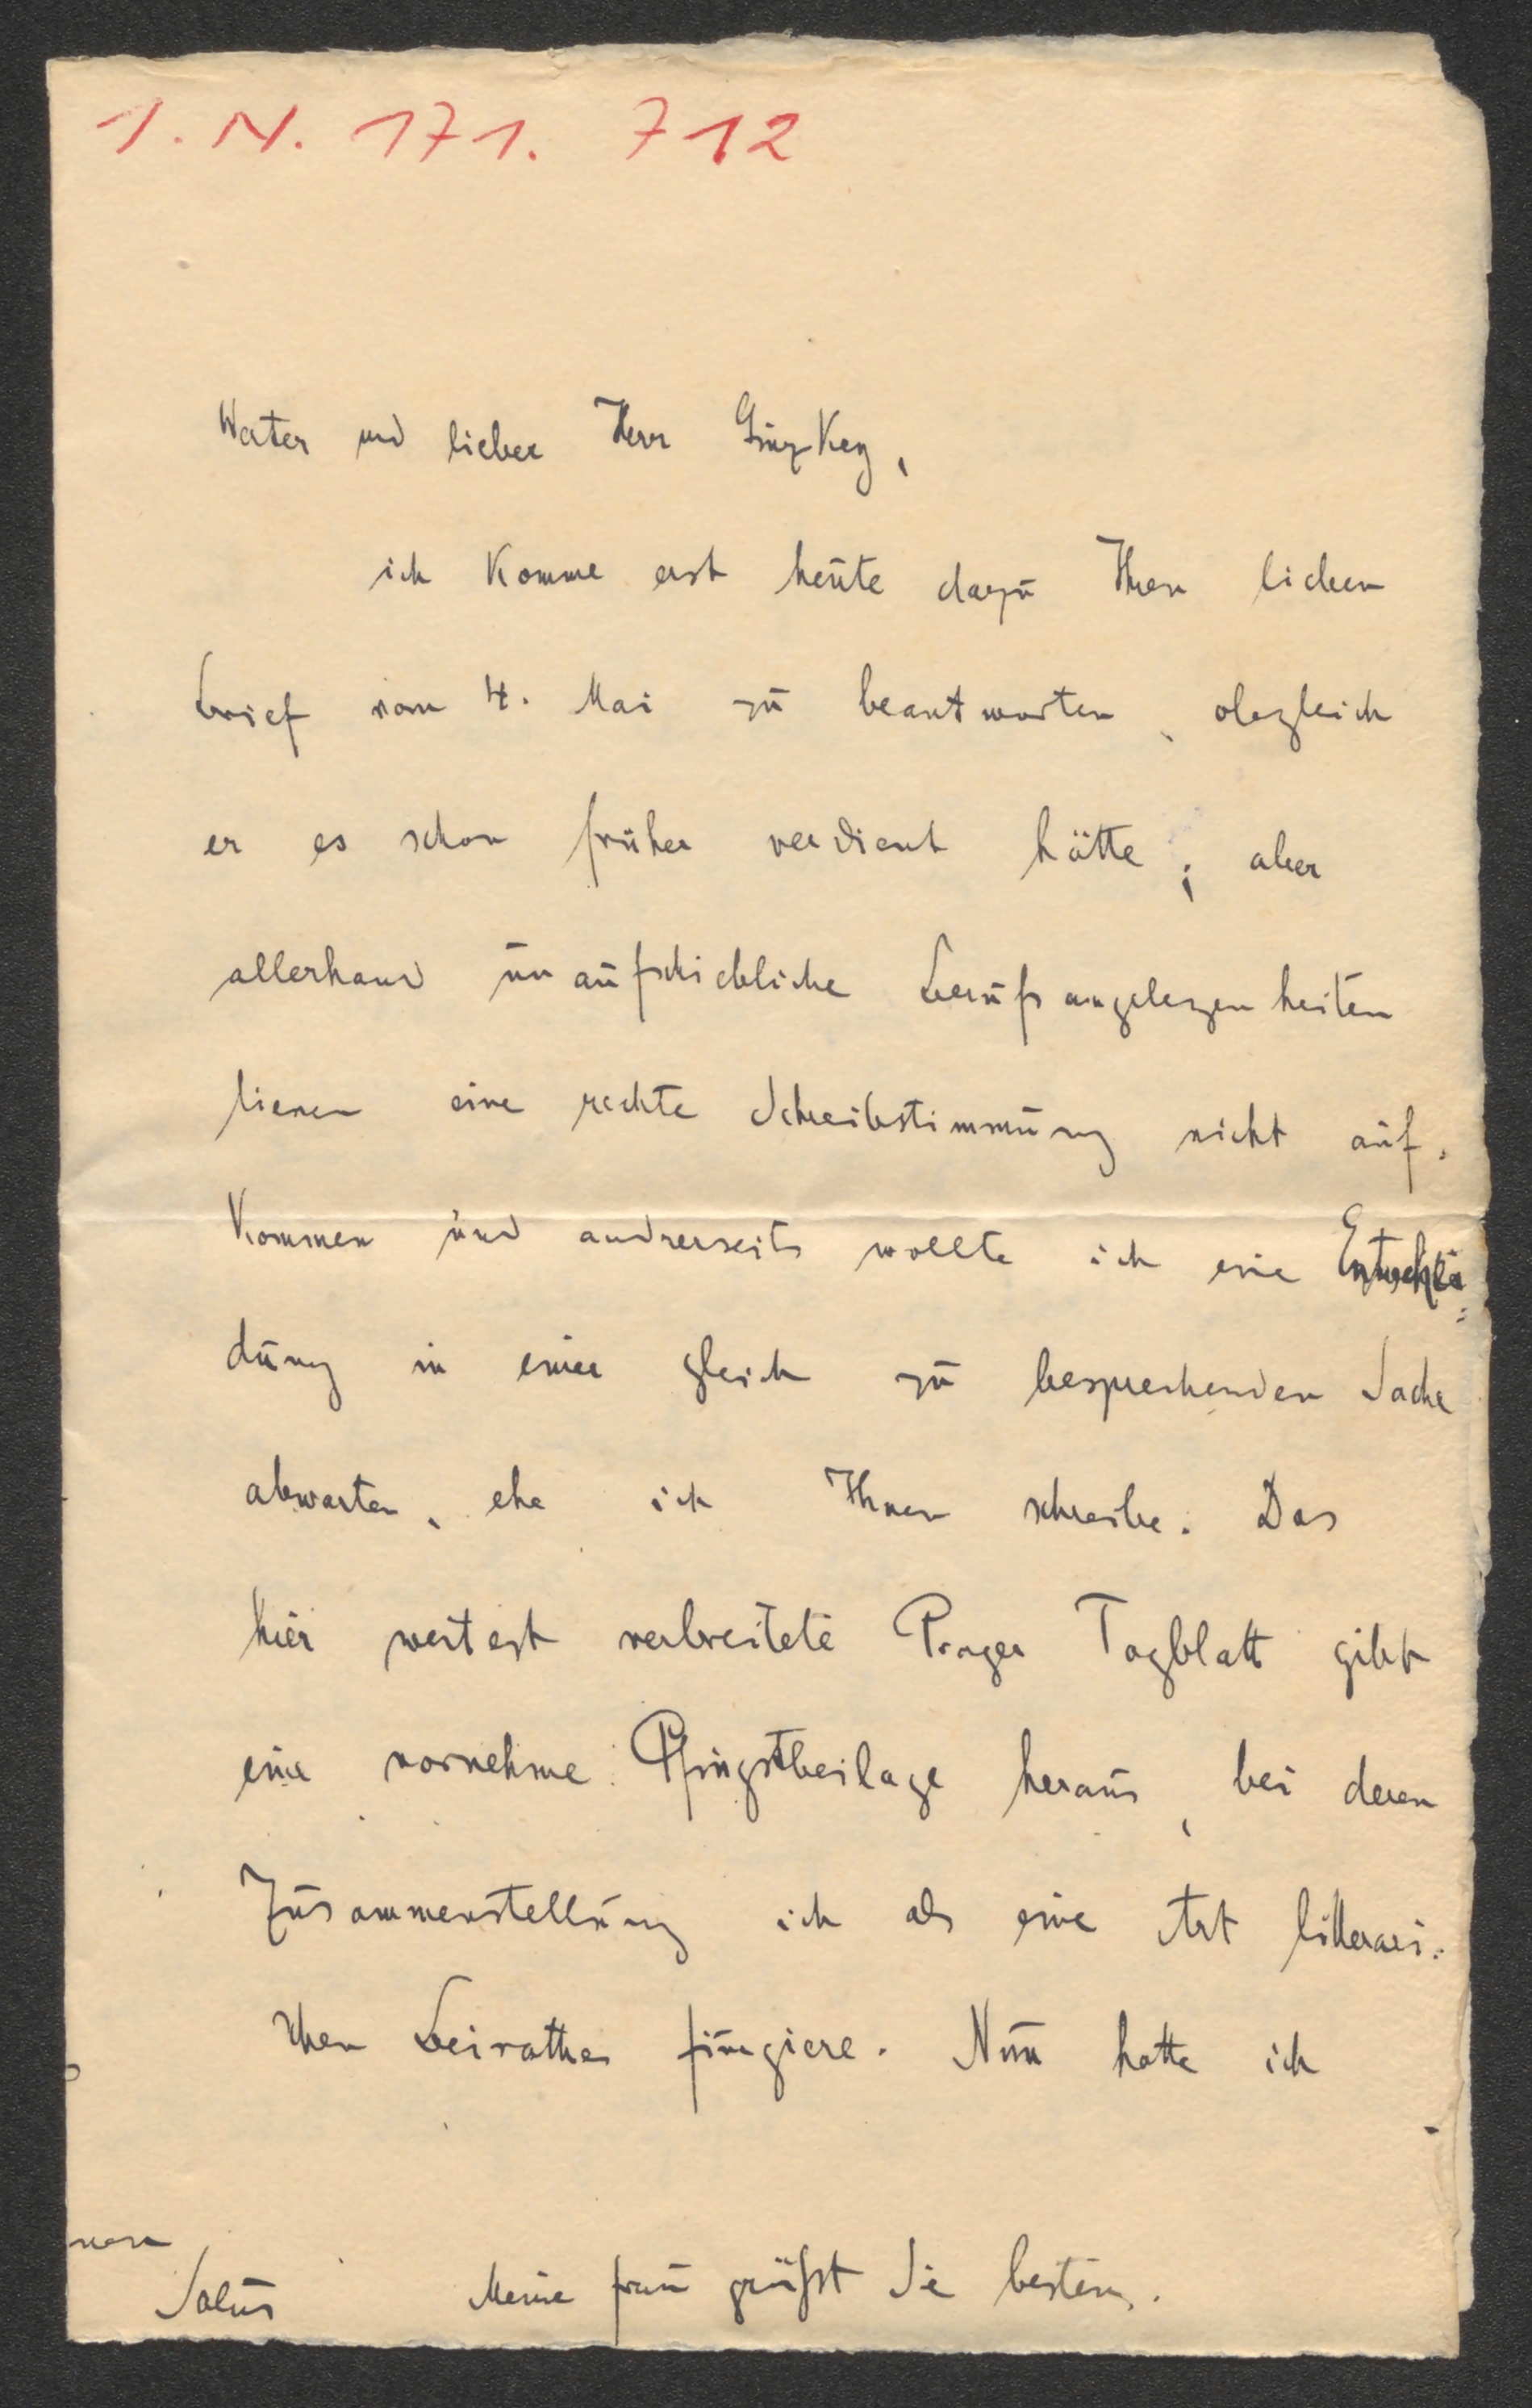 I. N. 171. 712
Werter und lieber Herr Ginzkey,
ich komme erst heute dazu Ihren lieben
Brief vom 4. Mai zu beantworten, obzgleich
er es schon früher verdient hätte; aber
allerhand unaufschiebliche Berufsangelegenheiten
liessen eine rechte Schreibstimmung nicht auf-
kommen und andrerseits wollte ich eine Entschei-
dung in einer gleich zu besprechenden Sache
abwarten, ehe ich Ihnen schreibe. Das
hier weitest verbreitete Prager Tagblatt gibt
eine vornehme Pfingstbeilage heraus, bei deren
Zusammenstellung ich als eine Art litterari-
schen Beirathes fungiere. Nun hatte ich
Salus Meine Frau grüßt Sie bestens.